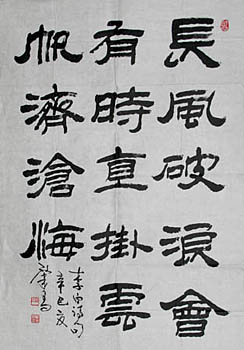 長風破浪會
有時直掛雲
帆濟滄海
李白诗句
辛巳夏